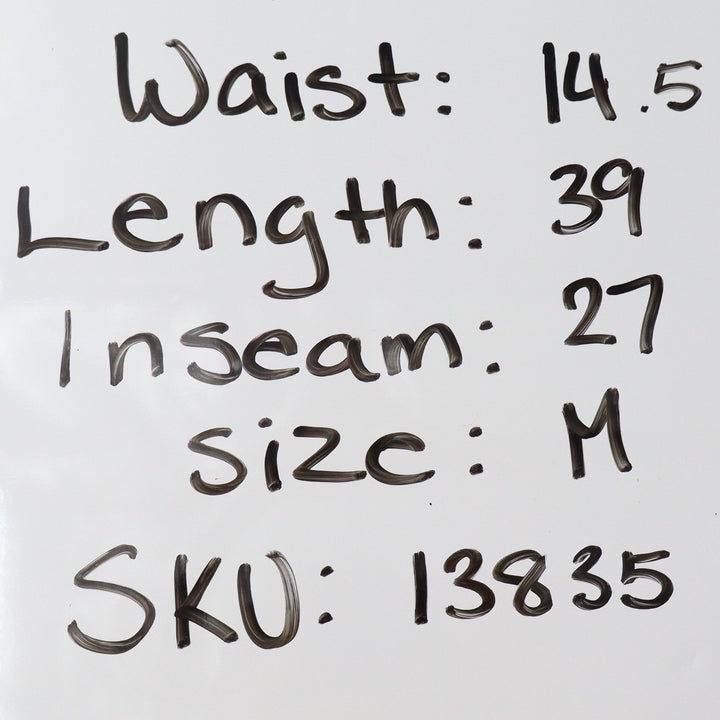 Waist: 14.5
Length: 39
Inseam: 27
Size: M
SKU: 13835